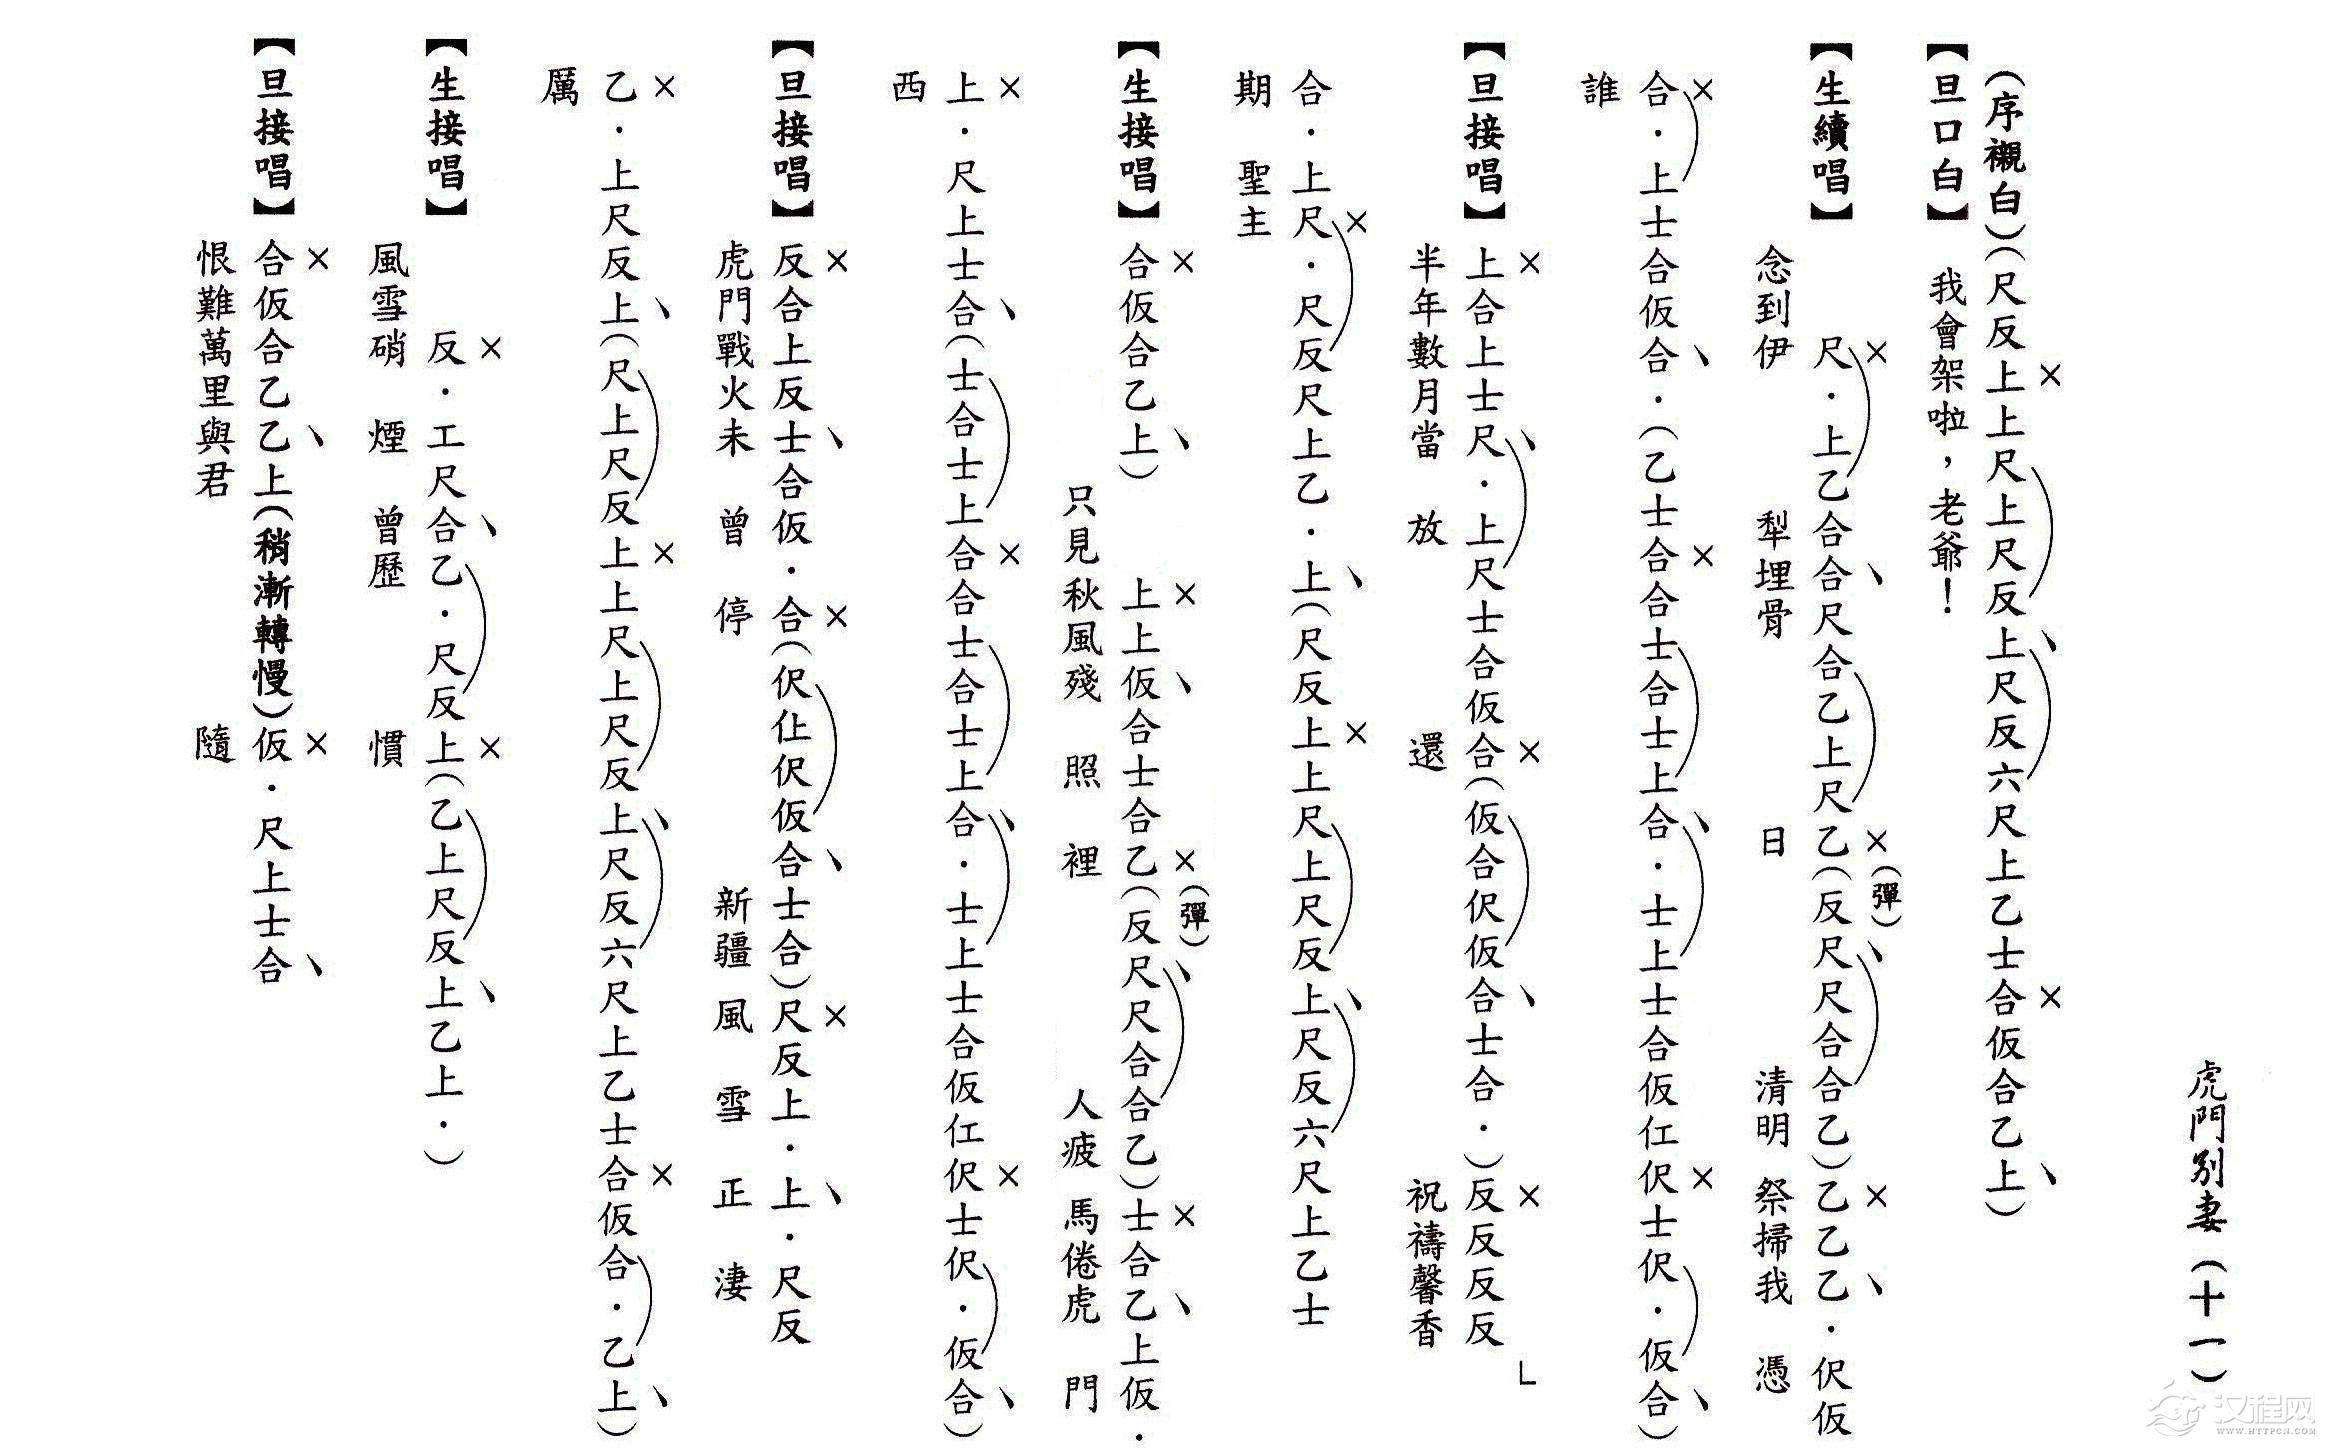 虎門別妻(十一)
(序襯白)(尺反上上尺上尺反上尺反六尺上乙士合仮合乙上)
【旦口白】我會架啦，老爺！
【生續唱】尺．上乙合合尺合乙上尺乙(反尺尺合合乙)乙乙乙．伬仮
(彈)
念到伊 犁埋骨 日 清明 祭掃我 憑
合．上士合仮合．(乙士合合士合士上合．士上士合仮仜伬士伬．仮合)
誰
【旦接唱】上合上士尺．上尺士合仮合(仮合伬仮合士合．)反反反反
半年數月當 放 還 祝禱馨香
合．上尺．尺反尺上乙．上(尺反上上尺上尺反上尺反六尺上乙士
期 聖主
【生接唱】合仮合乙上) 上上仮合士合乙(反尺尺合合乙)士合乙上仮．
(彈)
只見秋風殘 照 裡 人疲 馬倦虎 門
上．尺上士合(士合士上合合士合士上合．士上士合仮仜伬士伬．仮合)
西
【旦接唱】反合上反士合仮．合(伬仩伬仮合士合)尺反上．上．尺反
虎門戰火未 曾 停 新疆 風 雪 正 淒
乙．上尺反上(尺上尺反上上尺上尺反上尺反六尺上乙士合仮合．乙上)
厲
【生接唱】反．工尺合乙．尺反上(乙上尺反上乙上．)
風雪硝 煙 曾歷 慣
【旦接唱】合仮合乙乙上(稍漸轉慢)仮．尺上士合
恨難萬里與君 隨
汉程网
WWW.HTTPCN.COM